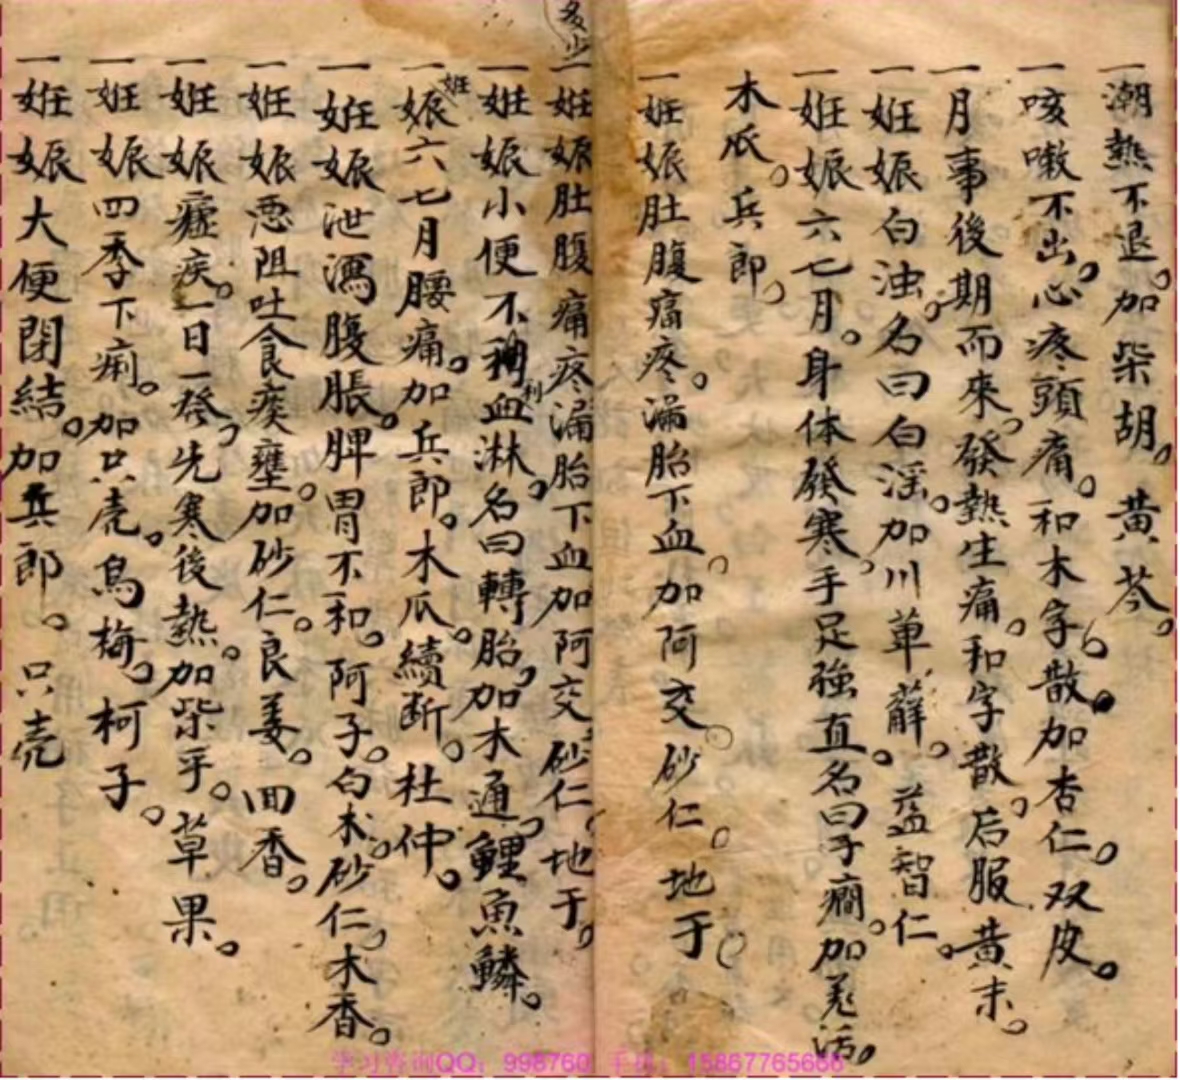 一潮熱不退。加柴胡。黄芩。
一咳嗽不出。心疼頭痛。和木字散加杏仁。双皮。
一月事後期而來。發熱生痛。和字散。后服黄末。
一妊娠白浊。名曰白淫。加川萆薢。益智仁。
一妊娠六七月。身体發寒。手足強直。名曰子癇。加羌活。
木瓜。兵郎。
一妊娠肚腹痛疼。漏胎下血。加阿交。砂仁。地于
多少
一妊娠肚腹痛疼漏胎下血加阿交。砂仁。地于。
一妊娠小便不利血淋。名曰轉胎。加木通。鯉魚鱗。
一妊娠六七月腰痛。加兵郎。木瓜。續断。杜仲。
一妊娠泄瀉腹脹。脾胃不和。阿子。白术。砂仁。木香。
一妊娠恶阻吐食痰壅。加砂仁。良姜。回香。
一妊娠瘧疾。一日一發。先寒後熱。加柴乎。草果。
一妊娠四季下痢。加只壳。烏梅。柯子。
一妊娠大便閉結。加兵郎。只壳
学习咨询QQ：998760 手机：15867765666